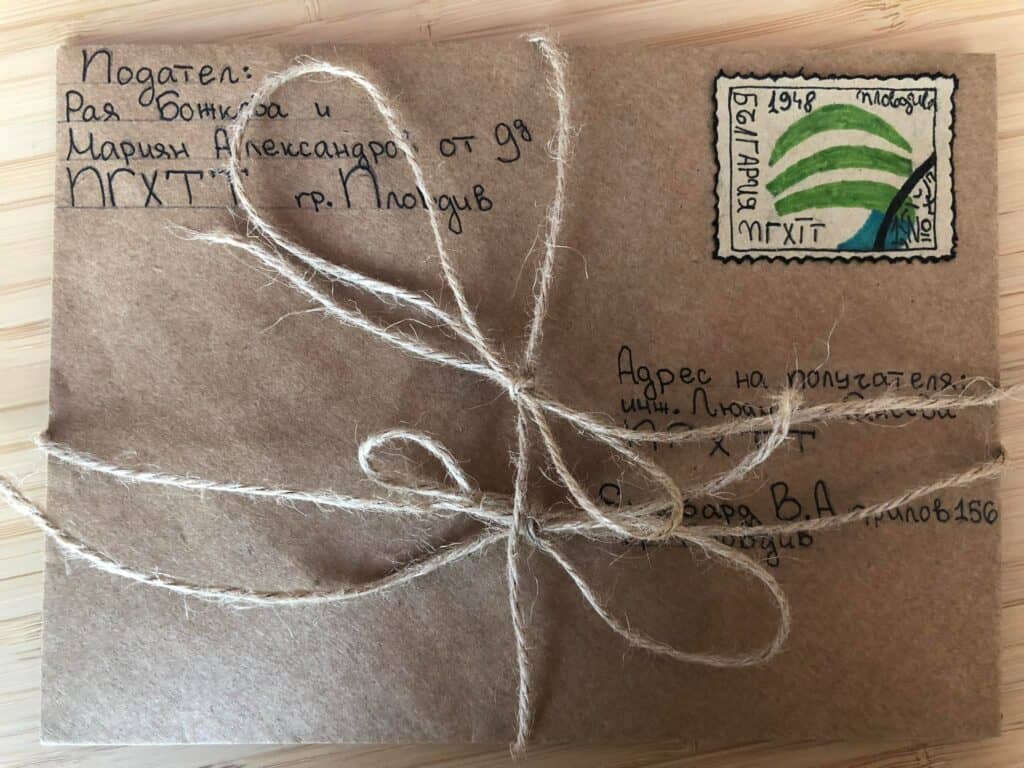 Подател:
Рая Божкова и
Мариян Александров от 9д
ПГХТТ гр. Пловдив
1948 Пловдив
БЪЛГАРИЯ
ПГХТТ
Адрес на получателя:
инж.
ПГХТТ
В.А прилов 156
Пловдив